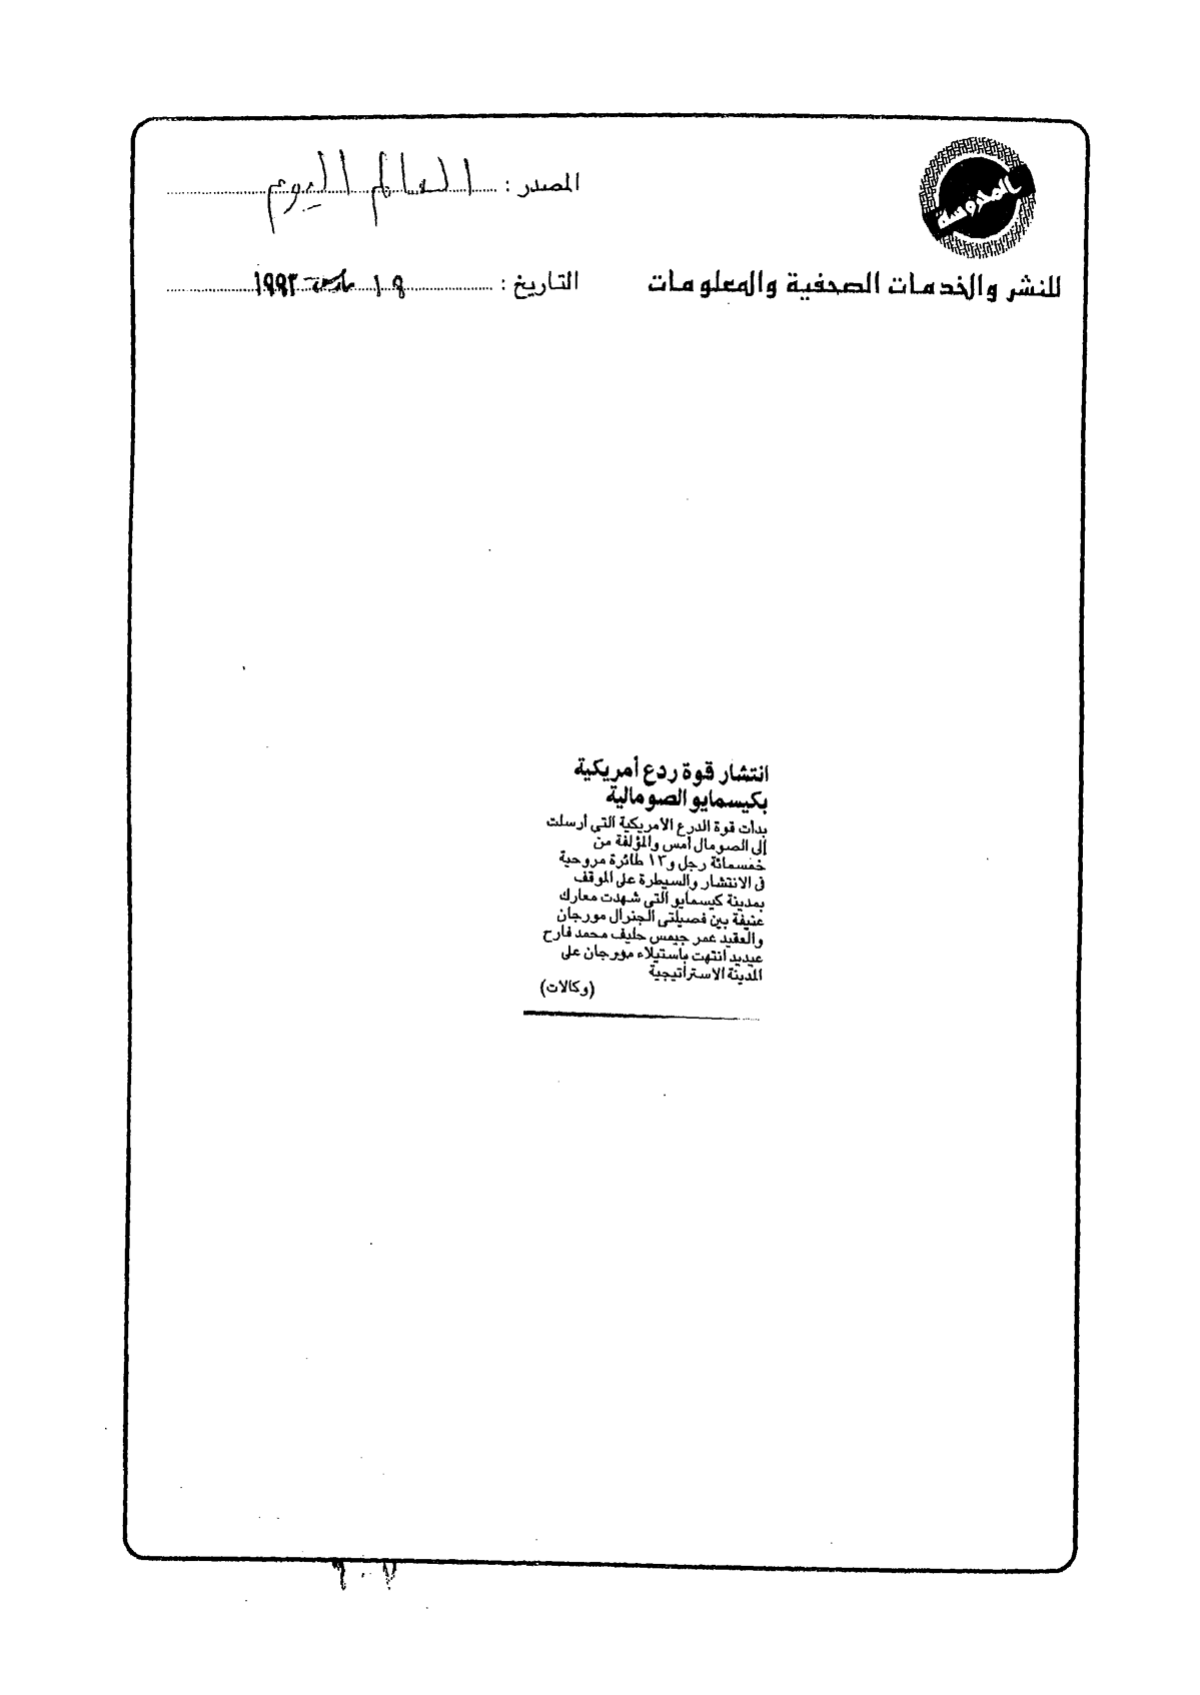 المحروسة
للنشر والخدمات الصحفية والمعلومات
المصدر : العالم اليوم
التاريخ : ١٩ مارس ١٩٩٣
انتشار قوة ردع أمريكية
بكيسمايو الصومالية
بدأت قوة الدرع الأمريكية التى أرسلت
إلى الصومال أمس والمؤلفة من
خمسمائة رجل و١٣ طائرة مروحية
فى الانتشار والسيطرة على الموقف
بمدينة كيسمايو التى شهدت معارك
عنيفة بين فصيلتى الجنرال مورجان
والعقيد عمر جيمس حليف محمد فارح
عيديد انتهت باستيلاء مورجان على
المدينة الاستراتيجية
(وكالات)